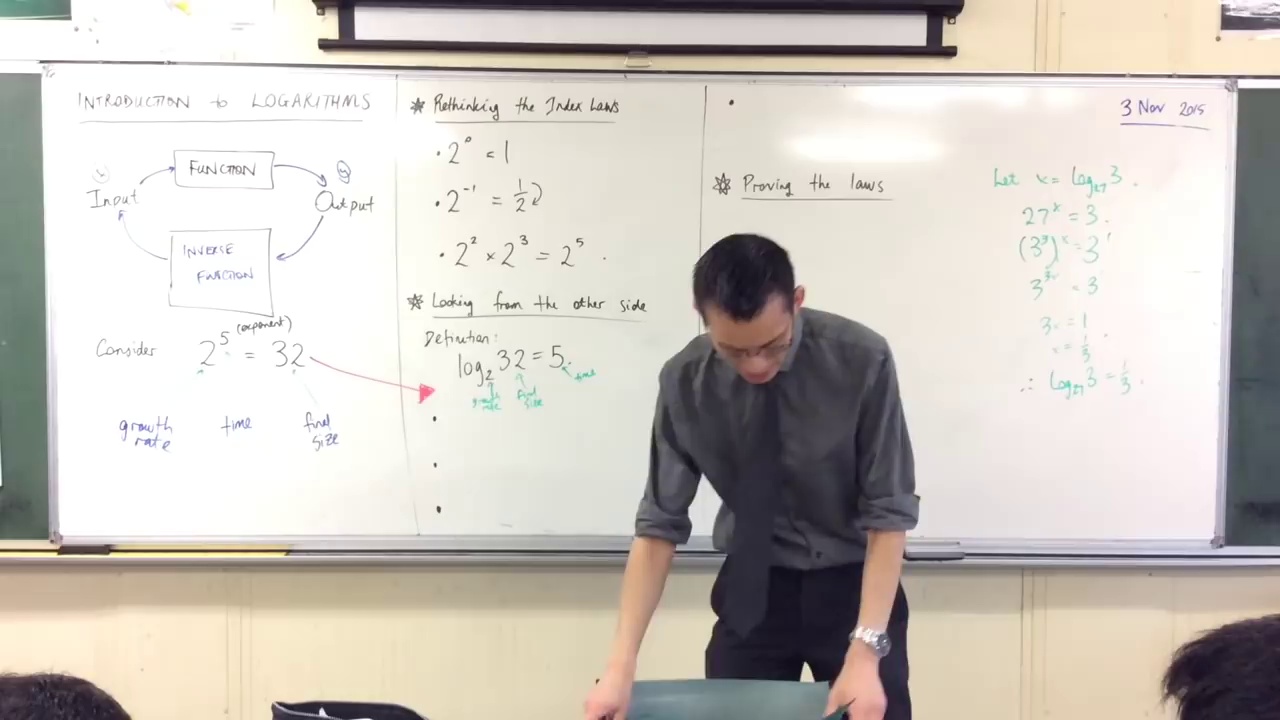 INTRODUCTION to LOGARITHMS
FUNCTION
Input
Output
INVERSE
FUNCTION
Consider 2^5 (exponent) = 32
growth rate
time
final size
* Rethinking the Index Laws
• 2^0 = 1
• 2^-1 = 1/2
• 2^2 × 2^3 = 2^5 .
* Looking from the other side
Definition:
log_2 32 = 5.
growth rate
final size
time
3 Nov 2015
* Proving the laws
Let x = log_27 3 .
27^x = 3 .
(3^3)^x = 3^1
3^3x = 3
3x = 1
x = 1/3 .
∴ log_27 3 = 1/3 .